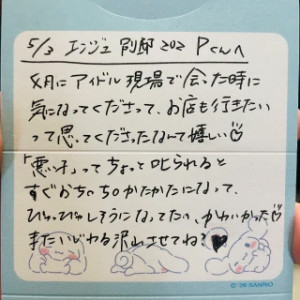 5/3 エンジュ 別邸 202 Pくんへ
4月にアイドル現場で会った時に
気になってくださって、お店も行きたい
って思ってくださったなんて嬉しい
「悪い子」ってちょっと叱られると
すぐおちちかたかたになって、
なってたね、かわいかった
またいじわる沢山させてね?♥
© '26 SANRIO